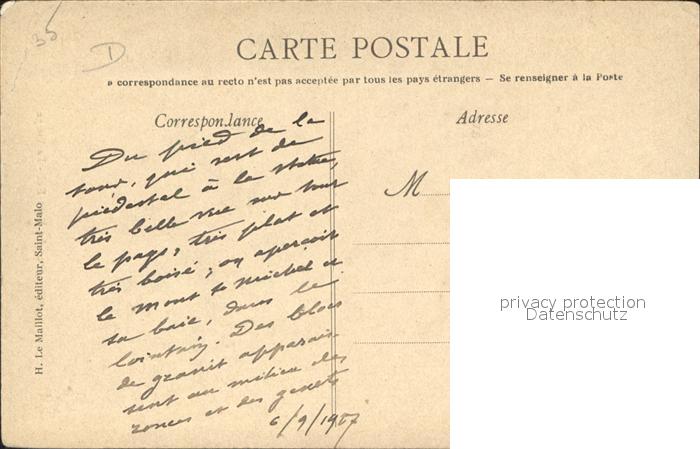 35
D
CARTE POSTALE
a correspondance au recto n'est pas acceptée par tous les pays étrangers — Se renseigner à la Poste
Correspondance
Adresse
Du pied de la
tour, qui sert de
piédestal à la statue,
très belle vue sur tout
le pays, très plat et
très boisé ; on aperçoit
le Mont St Michel et
sa baie, dans le
lointain. Des blocs
de granit apparais-
sent au milieu des
ronces et des genets
6/9/1907
M
H. Le Maillot, éditeur, Saint-Malo
privacy protection
Datenschutz